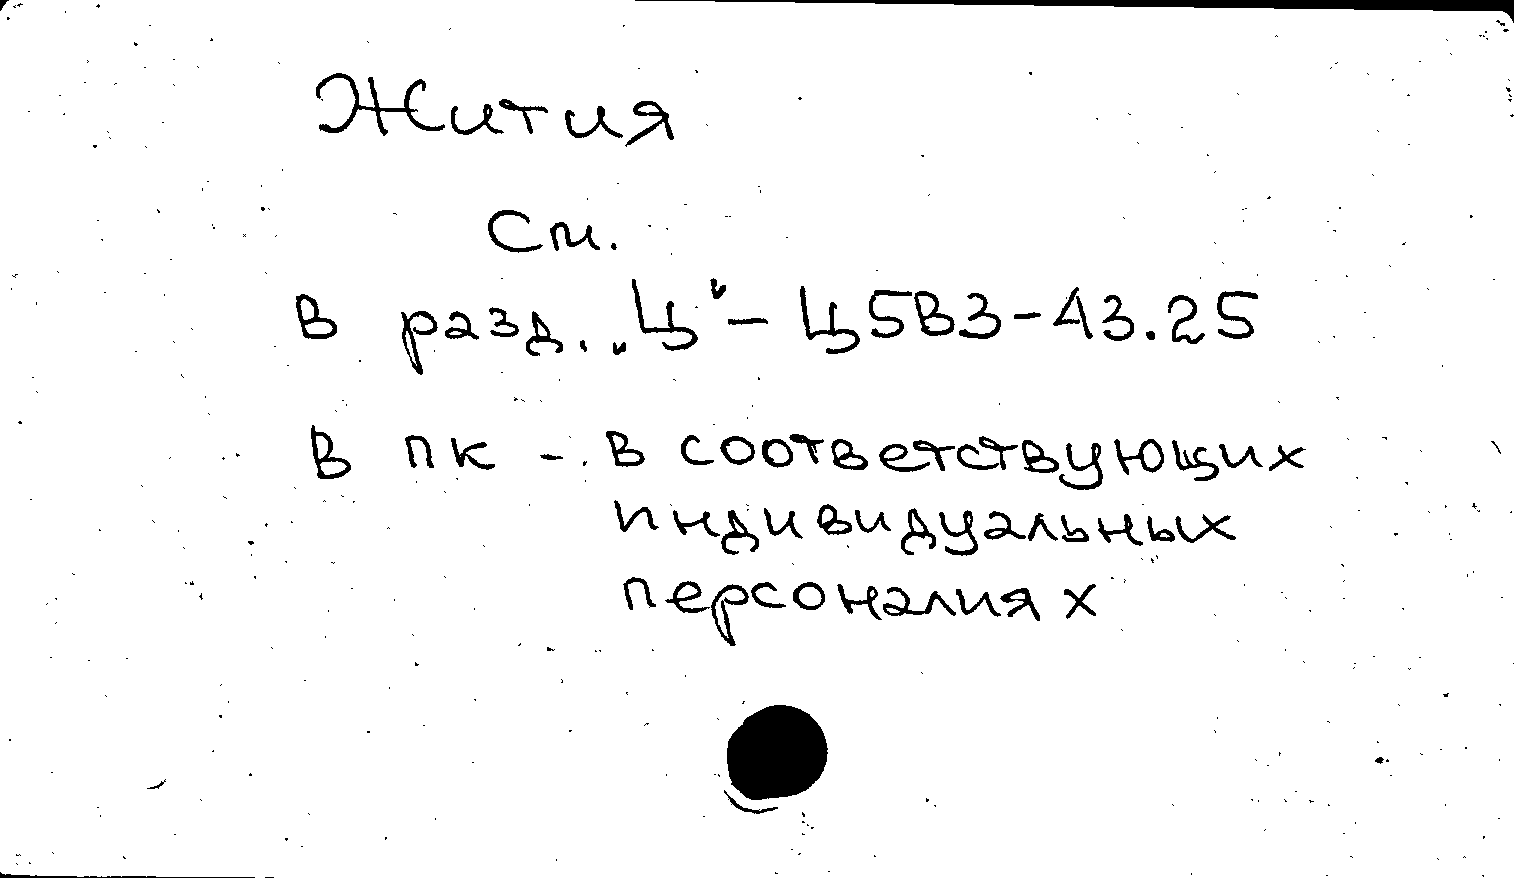 Жития
См.
В разд. „Ц" - Ц5В3-43.25
В ПК - в соответствующих
индивидуальных
персоналиях